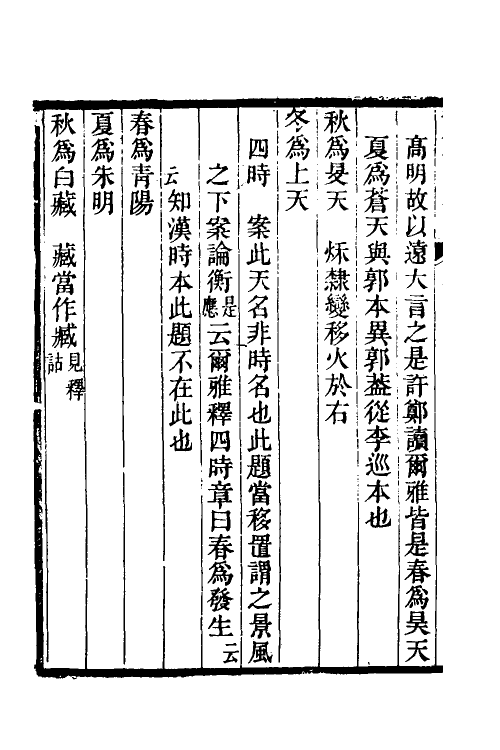 高明故以遠大言之是許鄭讀爾雅皆是春爲昊天
夏爲蒼天與郭本異郭葢從李巡本也
秋爲旻天　烁隸變移火於右
冬爲上天
四時　案此天名非時名也此題當移置謂之景風
之下案論衡是應云爾雅釋四時章曰春爲發生云
云知漢時本此題不在此也
春爲青陽
夏爲朱明
秋爲白藏　藏當作臧見釋詁